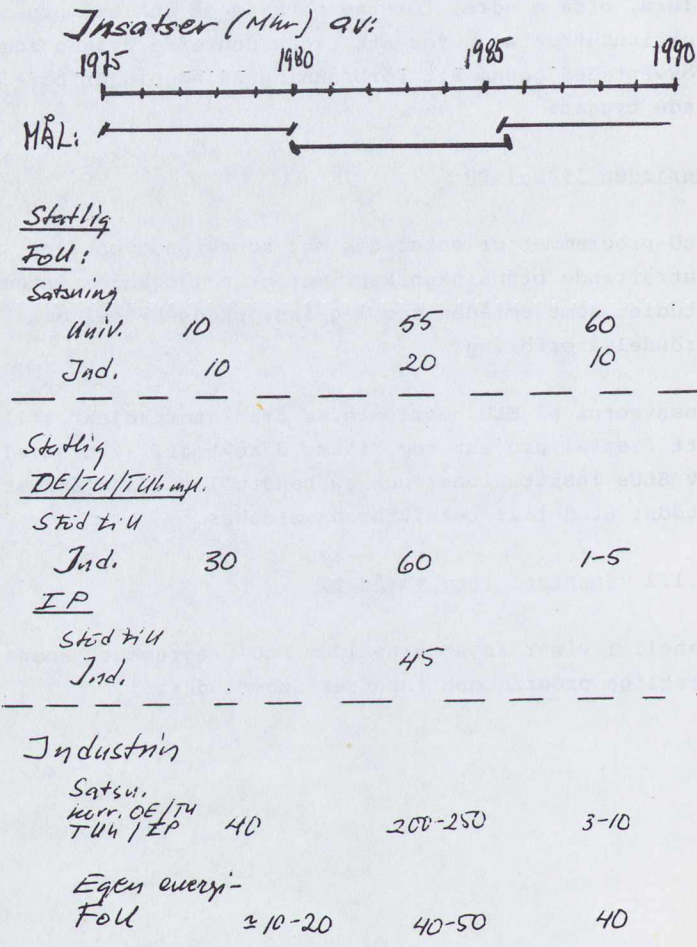 Insatser (Mkr) av:
1975 1980 1985 1990
MÅL:
Statlig
FoU:
Satsning
Univ. 10 55 60
Ind. 10 20 10
Statlig
OE/TU/TUh mfl.
Stöd till
Ind. 30 60 1-5
IP
Stöd till
Ind. 45
Industrin
Satsn.
korr. OE/TU
TUh / IP 40 200-250 3-10
Egen energi-
FoU ≃ 10-20 40-50 40